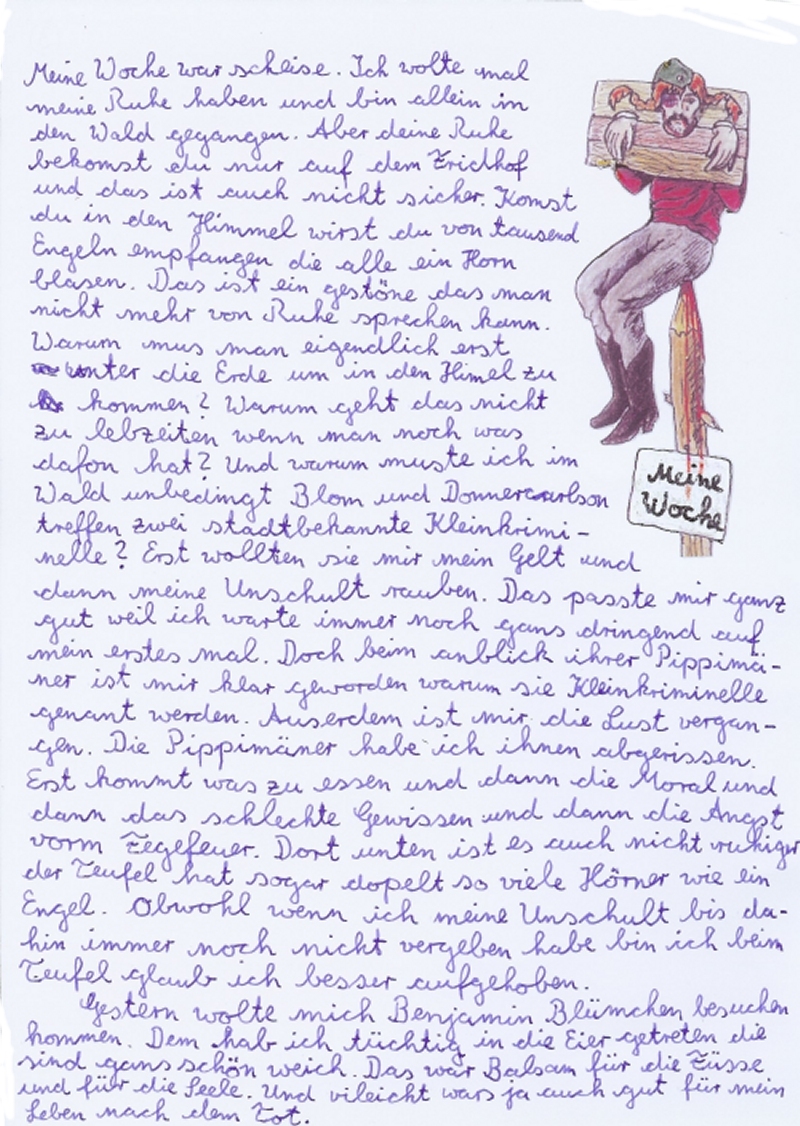 Meine Woche war scheise. Ich wolte mal
meine Ruhe haben und bin allein in
den Wald gegangen. Aber deine Ruhe
bekomst du nur auf dem Fridhof
und das ist auch nicht sicher. Komst
du in den Himmel wirst du von tausend
Engeln empfangen die alle ein Horn
blasen. Das ist ein gestöne das man
nicht mehr von Ruhe sprechen kann.
Warum mus man eigendlich erst
unter die Erde um in den Himel zu
kommen? Warum geht das nicht
zu lebzeiten wenn man noch was
dafon hat? Und warum muste ich im
Wald unbedingt Blom und Donnercarlson
treffen zwei stadtbekannte Kleinkrimi-
nelle? Erst wollten sie mir mein Gelt und
dann meine Unschult rauben. Das passte mir ganz
gut weil ich warte immer noch gans dringend auf
mein erstes mal. Doch beim anblick ihrer Pippimä-
ner ist mir klar geworden warum sie Kleinkriminelle
genant werden. Auserdem ist mir die Lust vergan-
gen. Die Pippimäner habe ich ihnen abgerissen.
Erst kommt was zu essen und dann die Moral und
dann das schlechte Gewissen und dann die Angst
vorm Fegefeuer. Dort unten ist es auch nicht ruhiger
der Teufel hat sogar dopelt so viele Hörner wie ein
Engel. Obwohl wenn ich meine Unschult bis da-
hin immer noch nicht vergeben habe bin ich beim
Teufel glaub ich besser aufgehoben.
Gestern wolte mich Benjamin Blümchen besuchen
kommen. Dem hab ich tüchtig in die Eier getreten die
sind gans schön weich. Das war Balsam für die Füsse
und für die Seele. Und vileicht wars ja auch gut für mein
Leben nach dem Tot.
Meine
Woche